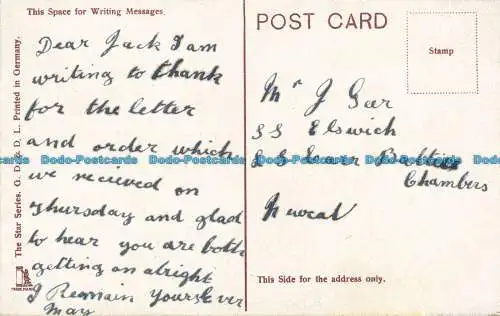 This Space for Writing Messages.
Dear Jack I am
writing to thank
for the letter
and order which
we recieved on
thursday and glad
to hear you are both
getting on alright
I Remain yours Ever
May
The Star Series. G. D. & D. L. Printed in Germany.
TRADE MARK
POST CARD
Stamp
Mr J Geer
SS Elswich
Chambers
This Side for the address only.
Dodo-Postcards Dodo-Postcards Dodo-Postcards Dodo-Postcards Dodo-Postcards